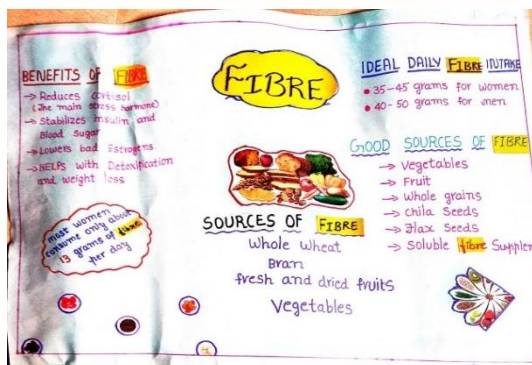 BENEFITS OF FIBRE
→ Reduces cortisol
(The main stress hormone)
→ Stabilizes insulin and
Blood sugar
→ Lowers bad Estrogens
→ HELPs with Detoxification
and weight loss
most women
consume only about
13 grams of fibre
per day
FIBRE
SOURCES OF FIBRE
Whole Wheat
Bran
fresh and dried fruits
Vegetables
IDEAL DAILY FIBRE INTAKE
• 35-45 grams for women
• 40-50 grams for men
GOOD SOURCES OF FIBRE
→ Vegetables
→ Fruit
→ Whole grains
→ Chila Seeds
→ Flax Seeds
→ Soluble fibre Supplem